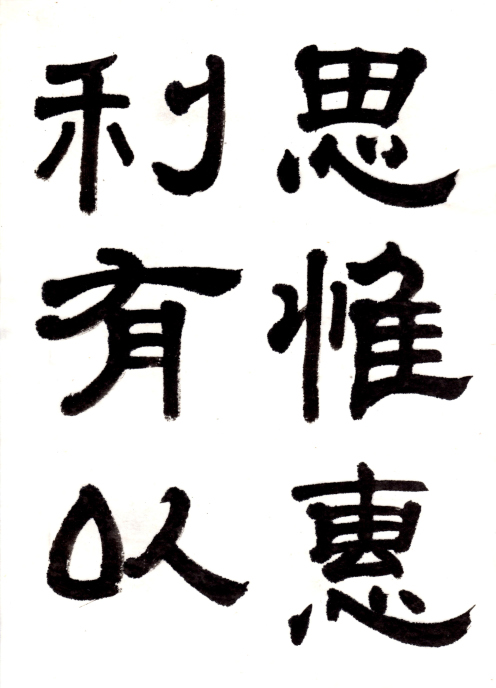 思惟惠
利有以